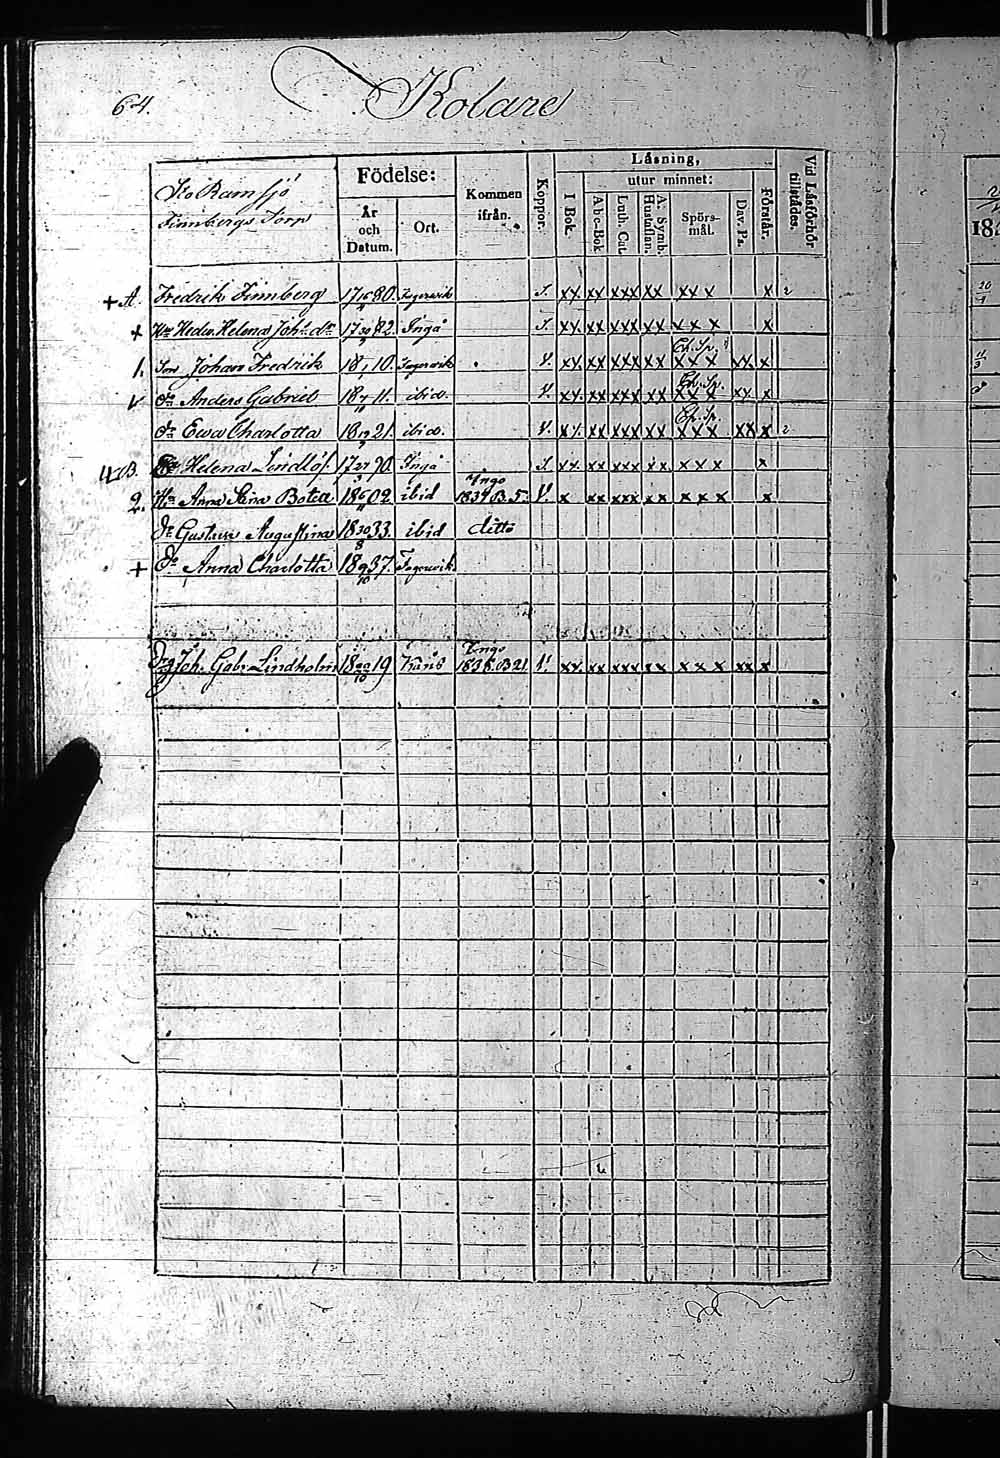 64.
Kolare
Sto Ramsjö
Finnbergs Torp
Födelse:
År och Datum.
Ort.
Kommen ifrån.
Koppor.
Läsning,
I Bok.
utur minnet:
Abc-Bok
Luth. Cat.
A. Symb. Hustaflan.
Spörs-mål.
Dav. Ps.
Förstår.
Vid Läsförhör. tillstädes.
+ A. Fredrik Finnberg 17 16 80. Fagervik S. xx xx xxx xx xxx x 2
+ Hu Hedw. Helena Joh:dr 17 30 82. Ingå S. xx xx xxx xx xxx x
1. Son Johan Fredrik 18 1 10. Fagervik V. xx xx xxx xx xxx xx x
do Anders Gabriel 18 11. ibid. V. xx xx xxx xx xxx xx x
dr Ewa Charlotta 18 19 21. ibid. V. xx xx xxx xx xxx xx x 2
B. Helena Lindlöf. 17 27 90. Ingå S. xx xx xxx xx xxx x
2. Hu Anna Stina Botea 18 6 02. ibid Ingo 1834 B. 5. V. x xx xxx xx xxx x
dr Gustava Augustina 18 30/8 33. ibid ditto
+ do Anna Charlotta 18 9/10 37. Fagervik
Drg Joh. Gabr. Lindholm 18 20/10 19 Ingo 1838. B 21. V. xx xx xxx xx xxx xx x
183